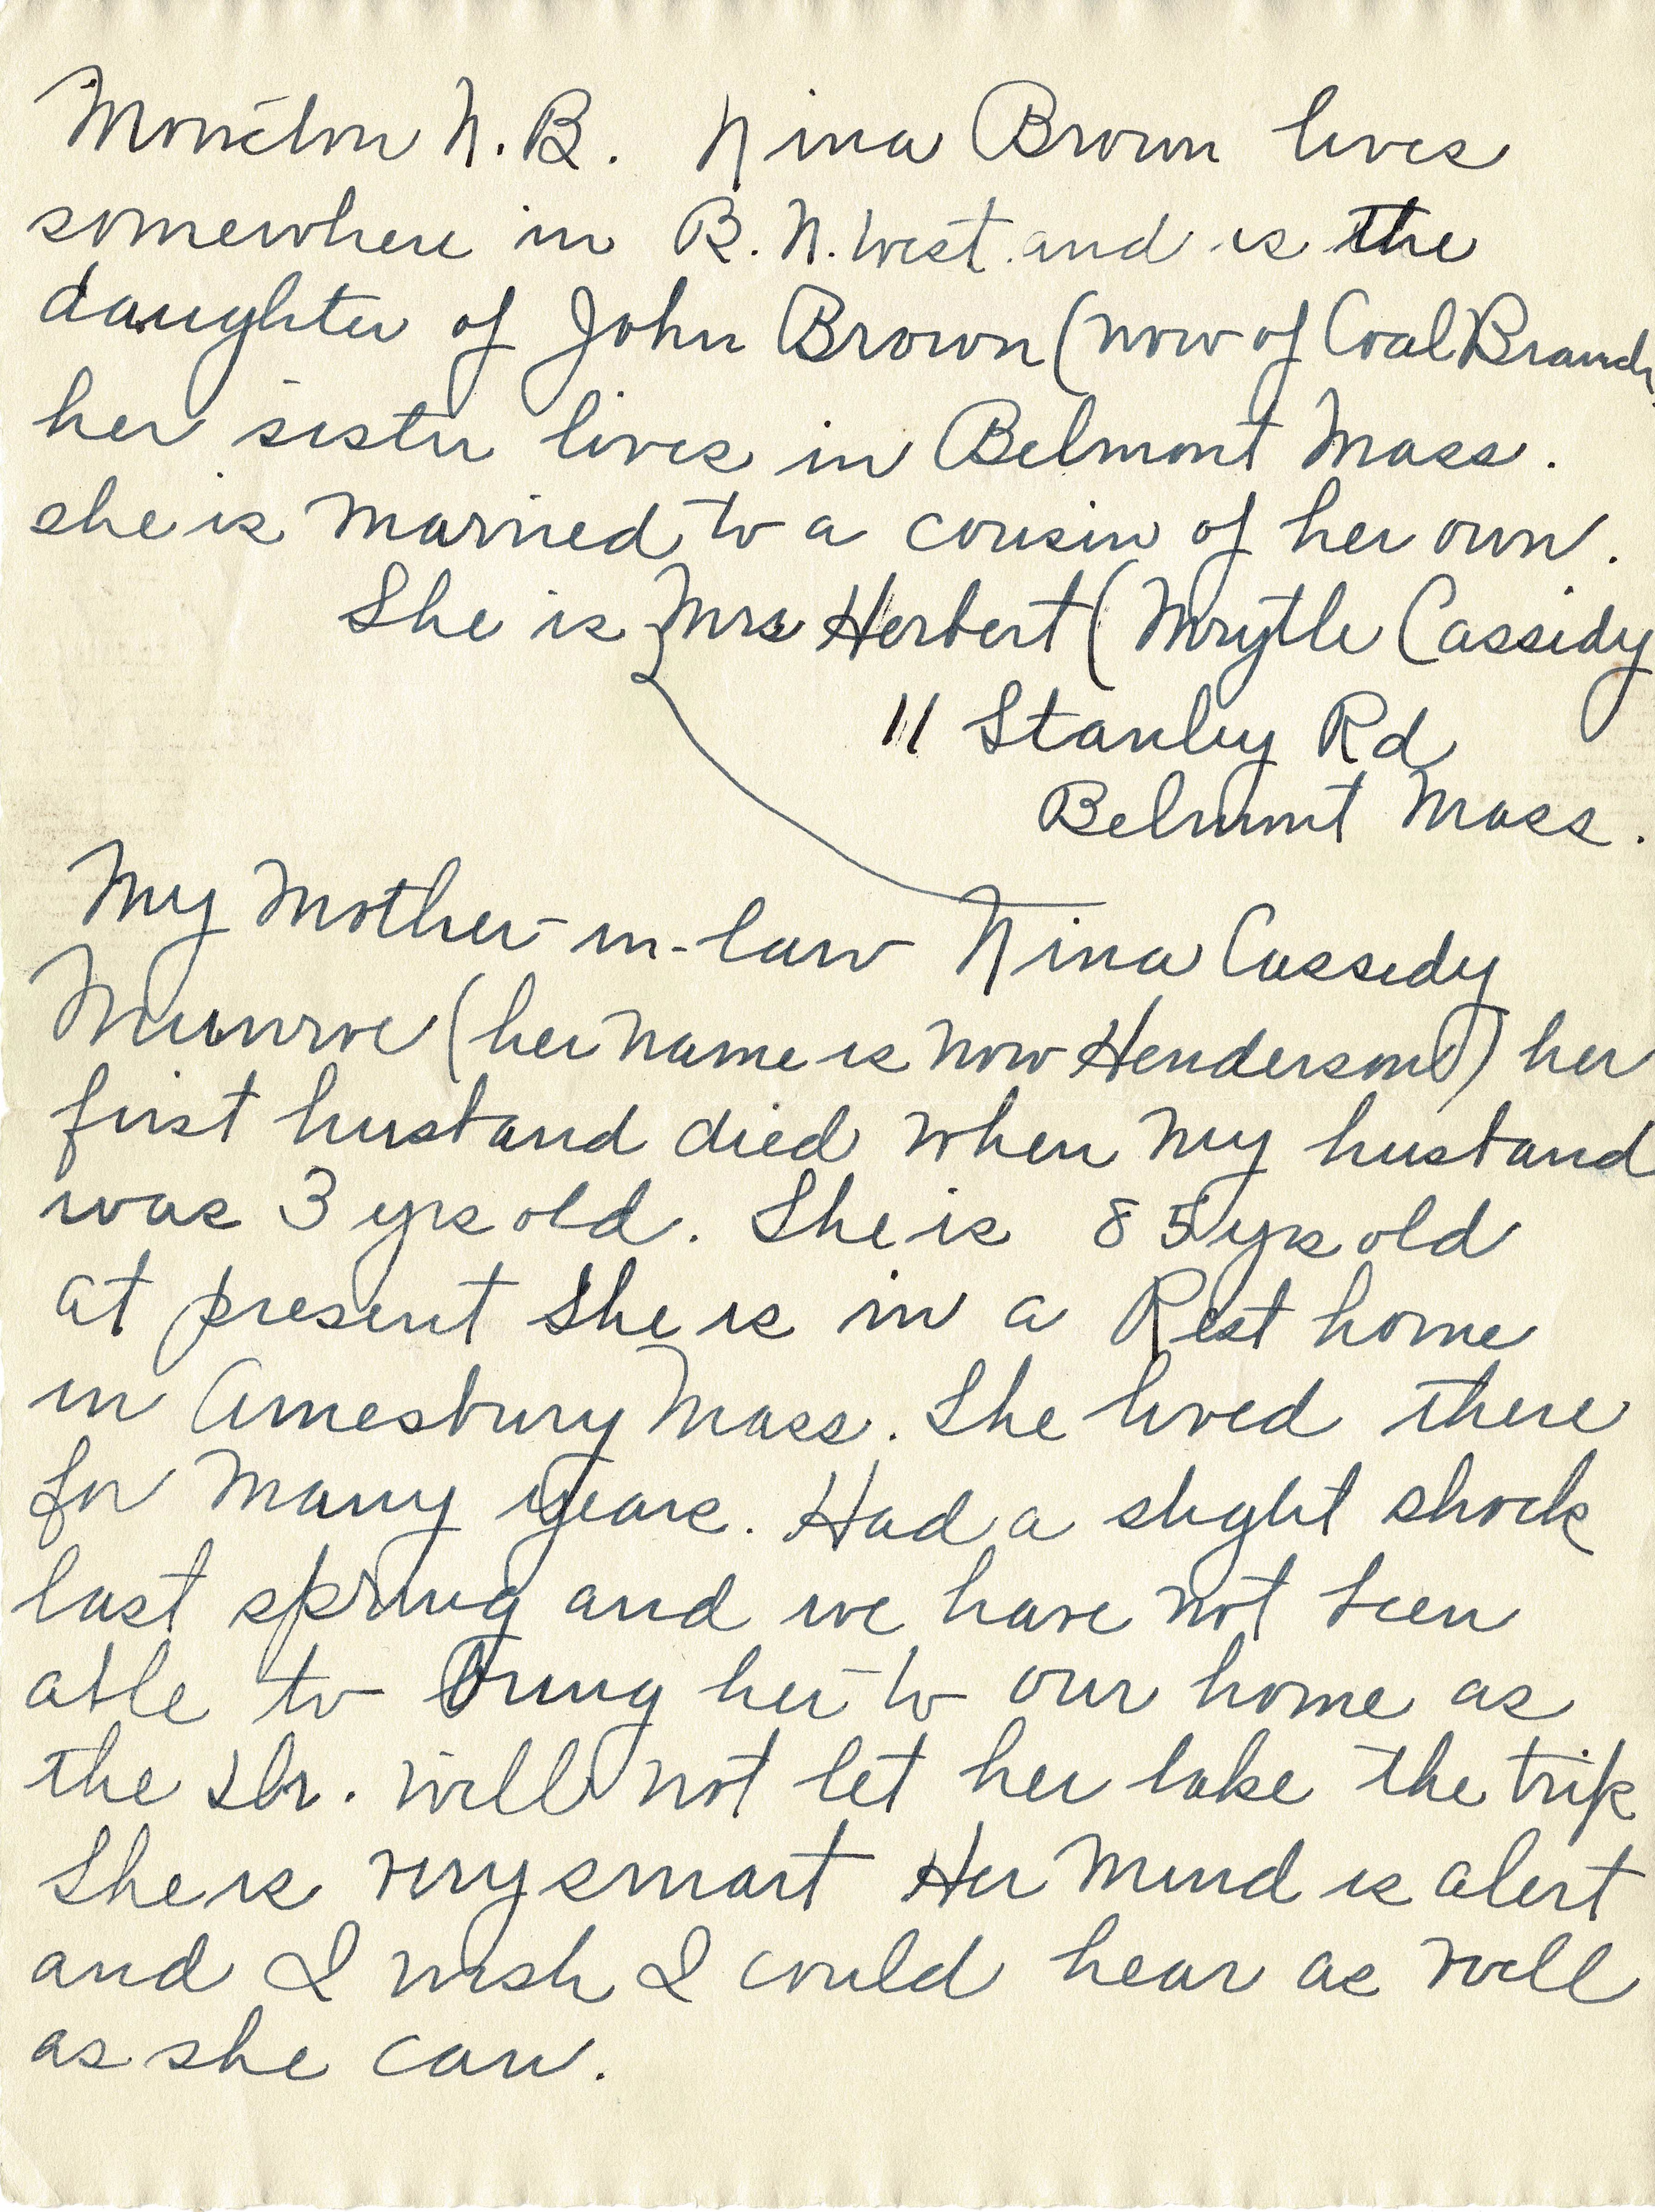 Moncton N.B. Nina Brown lives
somewhere in B.N. West and is the
daughter of John Brown (now of Coal Branch
her sister lives in Belmont Mass.
she is married to a cousin of her own.
She is Mrs Herbert (Mrytle Cassidy
11 Stanley Rd
Belmont Mass.
My Mother-in-law Nina Cassidy
Munroe (her name is now Henderson) her
first husband died when my husband
was 3 yrs old. She is 85 yrs old
at present She is in a Rest home
in Amesbury Mass. She lived there
for many years. Had a slight shock
last spring and we have not been
able to bring her to our home as
the Dr. will not let her take the trip
She is very smart Her mind is alert
and I wish I could hear as well
as she can.